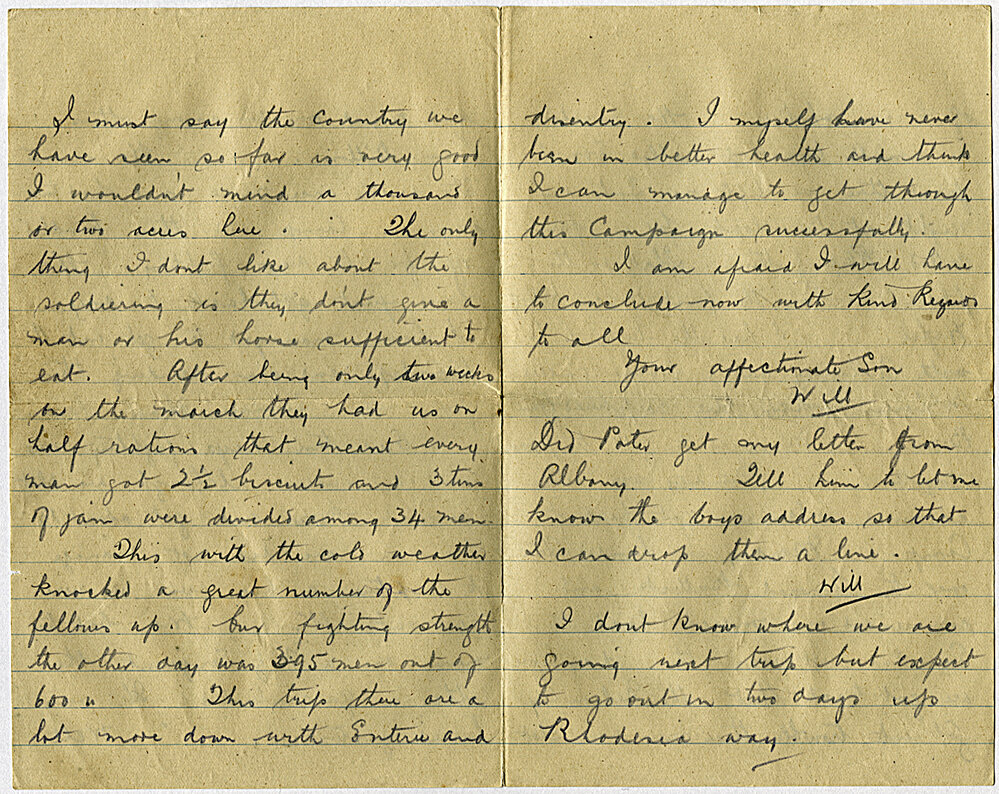 I must say the country we
have seen so far is very good
I wouldn't mind a thousand
or two acres here. The only
thing I dont like about the
soldiering is they don't give a
man or his horse sufficient to
eat. After being only two weeks
on the march they had us on
half rations that meant every
man got 2½ biscuits and 3 tins
of jam were divided among 34 men.
This with the cold weather
knocked a great number of the
fellows up. Our fighting strength
the other day was 395 men out of
600 " This trip there are a
lot more down with Enteric and
disentry. I myself have never
been in better health and think
I can manage to get through
this Campaign successfully.
I am afraid I will have
to conclude now with kind Regards
to all
Your affectionate Son
Will
Did Pater get my letter from
Albany. Tell him to let me
know the boys address so that
I can drop them a line.
Will
I dont know where we are
going next trip but expect
to go out in two days up
Rhodesia way.